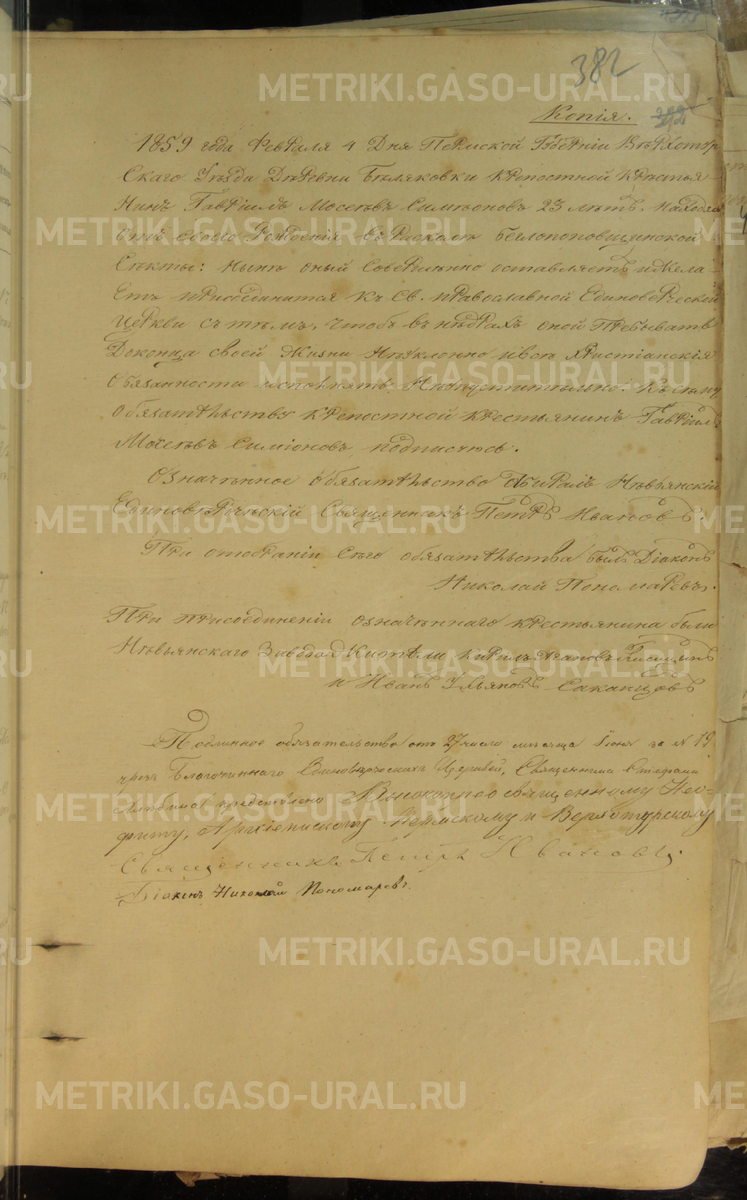 382
Копія.
1859 года Февраля 4 Дня Пермской Губерніи Верхотур
скаго Уезда Деревни Беляковки крепостной Крестья
нинъ Гавріилъ Мосеевъ Симеоновъ 23 летъ находяс
своего Рожденія въ расколе беглопоповщинской
Секты: Ныне оный Совершенно оставляетъ и жела
етъ присоединится къ Св. православной Единоверческой
Церкви съ темъ, чтобъ въ недрахъ оной Пребывать
До конца своей Жизни Неуклонно и все христіанскія
обязанности исполнять Неупустительно. Къ сему
Обязательству крепостной крестьянинъ Гавріилъ
Мосеевъ Симіоновъ подписуюсь.
Означенное обязательство Невьянскій
Единоверческій Священникъ Петръ Ивановъ.
При отобраніи Сего обязательства былъ Діаконъ
Николай Пономаревъ.
При присоединеніи означеннаго крестьянина были
Невьянскаго Завода Жители Кирилъ
и Иванъ Ульяновъ Саканцовъ
Подлинное обязательство отъ 27 число месяца Іюня за N 19
чрезъ Благочиннаго Единоверческихъ Церквей, Священника Стефана
представлено Высокопреосвященному Нео-
фиту, Архіепископу Пермскому и Верхотурскому
Священникъ Петръ Ивановъ
Діаконъ Николай Пономаревъ.
METRIKI.GASO-URAL.RU